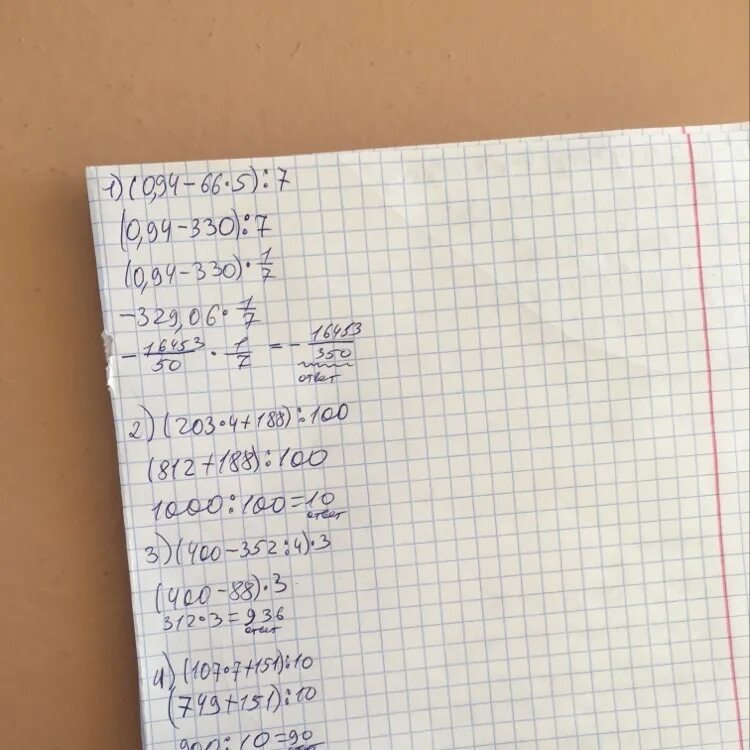 1) (0,94-66·5):7
(0,94-330):7
(0,94-330)·1/7
-329,06·1/7
-16453/50·1/7=-16453/350
ответ
2) (203·4+188):100
(812+188):100
1000:100=10
ответ
3) (400-352:4)·3
(400-88)·3
312·3=936
ответ
4) (107·7+151):10
(749+151):10
900:10=90